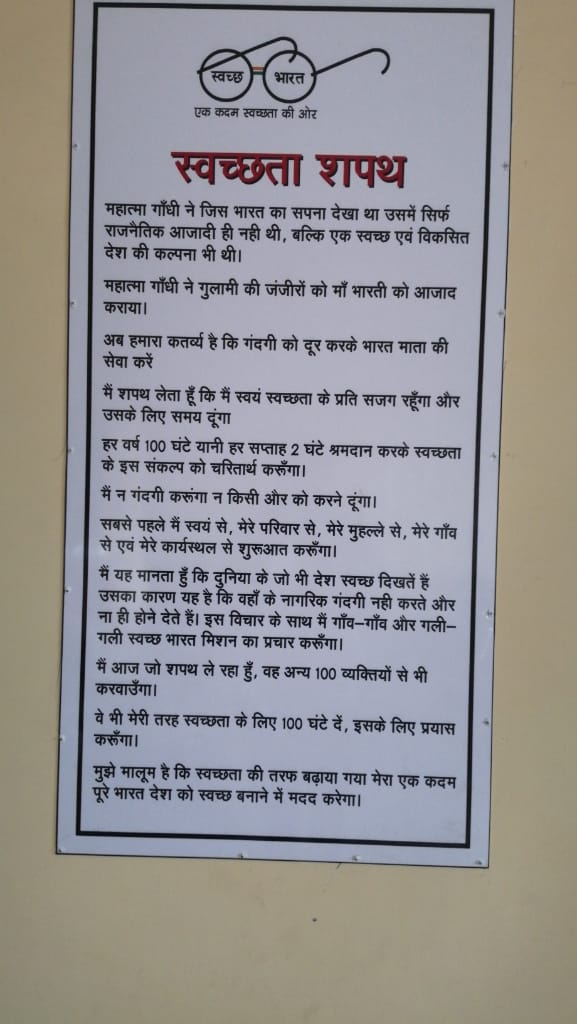 स्वच्छ भारत
एक कदम स्वच्छता की ओर
स्वच्छता शपथ
महात्मा गाँधी ने जिस भारत का सपना देखा था उसमें सिर्फ
राजनैतिक आजादी ही नही थी, बल्कि एक स्वच्छ एवं विकसित
देश की कल्पना भी थी।
महात्मा गाँधी ने गुलामी की जंजीरों को माँ भारती को आजाद
कराया।
अब हमारा कतर्व्य है कि गंदगी को दूर करके भारत माता की
सेवा करें
मैं शपथ लेता हूँ कि मैं स्वयं स्वच्छता के प्रति सजग रहूँगा और
उसके लिए समय दूंगा
हर वर्ष 100 घंटे यानी हर सप्ताह 2 घंटे श्रमदान करके स्वच्छता
के इस संकल्प को चरितार्थ करूँगा।
मैं न गंदगी करूंगा न किसी और को करने दूंगा।
सबसे पहले मैं स्वयं से, मेरे परिवार से, मेरे मुहल्ले से, मेरे गाँव
से एवं मेरे कार्यस्थल से शुरूआत करूँगा।
मैं यह मानता हुँ कि दुनिया के जो भी देश स्वच्छ दिखतें हैं
उसका कारण यह है कि वहाँ के नागरिक गंदगी नही करते और
ना ही होने देते हैं। इस विचार के साथ मैं गाँव–गाँव और गली–
गली स्वच्छ भारत मिशन का प्रचार करूँगा।
मैं आज जो शपथ ले रहा हुँ, वह अन्य 100 व्यक्तियों से भी
करवाउँगा।
वे भी मेरी तरह स्वच्छता के लिए 100 घंटे दें, इसके लिए प्रयास
करूँगा।
मुझे मालूम है कि स्वच्छता की तरफ बढ़ाया गया मेरा एक कदम
पूरे भारत देश को स्वच्छ बनाने में मदद करेगा।